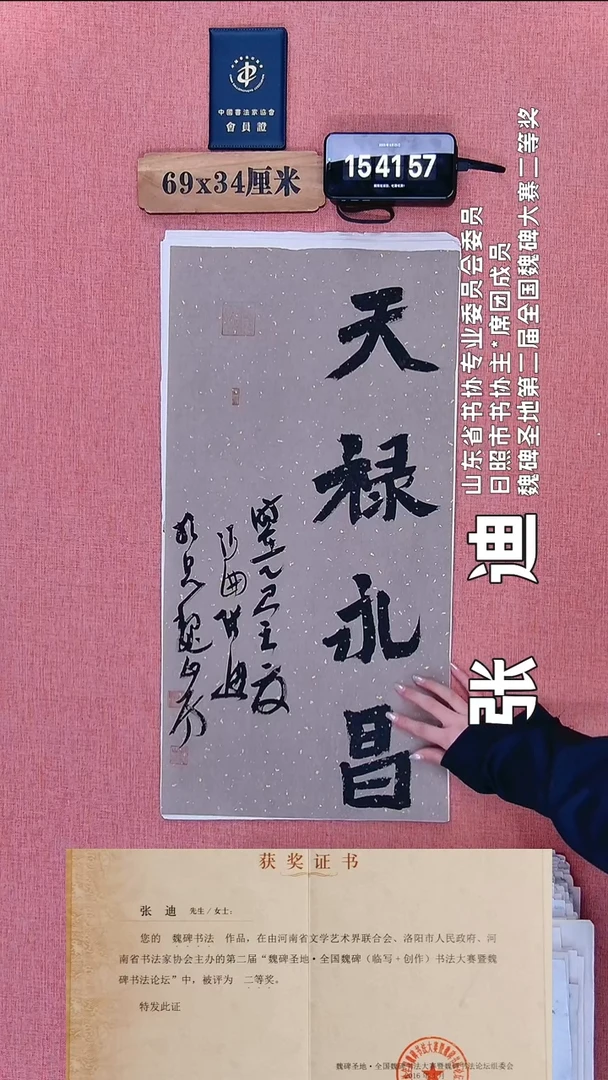 中國書法家協會
會員證
69x34厘米
15 41 57
山东省书协专业委员会委员
日照市书协主*席团成员
魏碑圣地第二届全国魏碑大赛二等奖
张 迪
天禄永昌
获奖证书
张 迪 先生/女士:
您的 魏碑书法 作品，在由河南省文学艺术界联合会、洛阳市人民政府、河
南省书法家协会主办的第二届“魏碑圣地·全国魏碑（临写+创作）书法大赛暨魏
碑书法论坛”中，被评为 二等奖。
特发此证
魏碑圣地·全国魏碑书法大赛暨魏碑书法论坛组委会